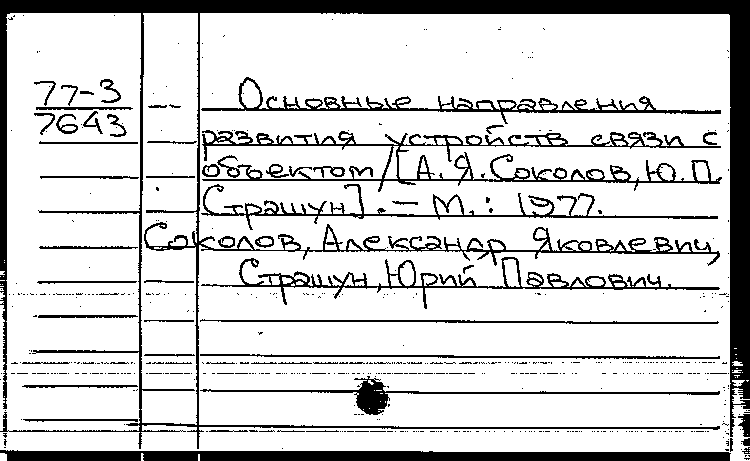 77-3
7643
Основные направления
развития устройств связи с
объектом/[А.Я.Соколов,Ю.П.
Страшун]. — М.: 1977.
Соколов, Александр Яковлевич,
Страшун, Юрий Павлович.